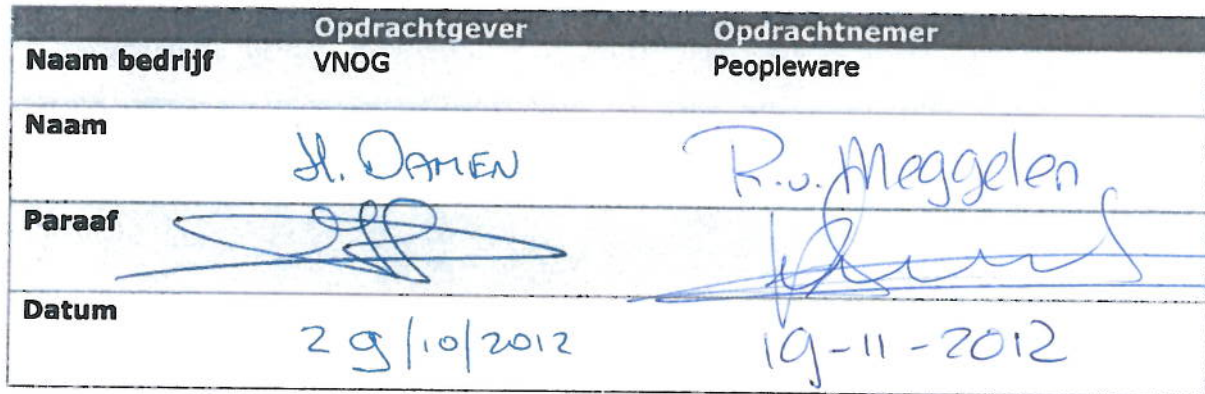 Opdrachtgever Opdrachtnemer
Naam bedrijf VNOG Peopleware
Naam H. DAMEN R.v. Meggelen
Paraaf
Datum 29/10/2012 19-11-2012